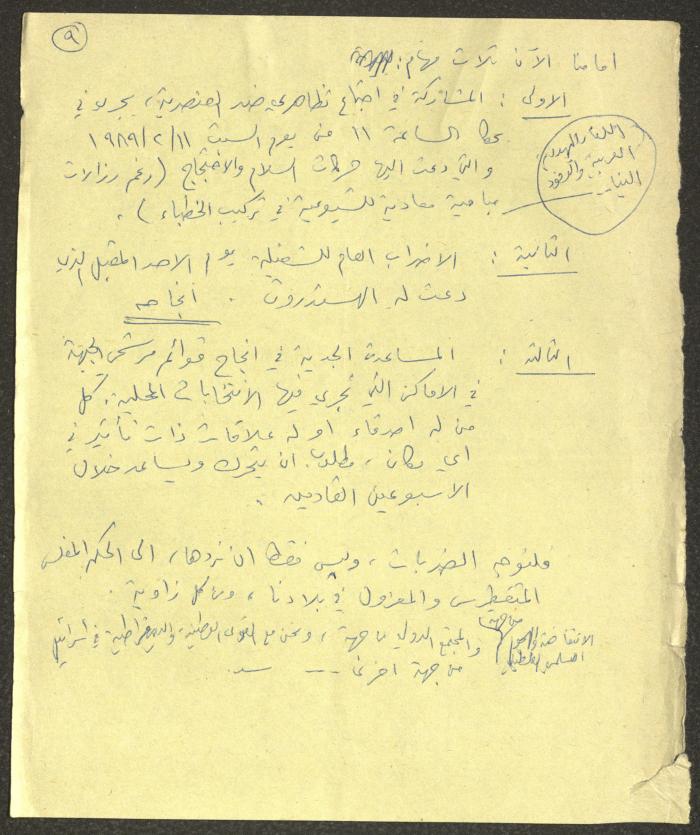 ٩
امامنا الآن ثلاث مهام:
الاولى: المشاركة في اجتماع تظاهري ضد العنصرية، يجري في
الساعة ١١ من يوم السبت ١٩٨٩/٢/١١
والتي دعت اليها حركات السلام والاحتجاج (رغم رزالات
مبامية معادية للشيوعية في تركيب الخطباء).
اللقاء اليهودية
العربية والوفود
الثانية: الاضراب العام للشغيلة يوم الاحد المقبل الذي
دعت له الهستدروت. انجاحه
الثالثة: المساعدة الجدية في انجاح قوائم مرشحي الجبهة
في الاماكن التي تجري فيها الانتخابات المحلية. كل
من له اصدقاء او له علاقات ذات تأثير في
اي مكان، مطلوب ان يتحرك ويساعد خلال
الاسبوعين القادمين.
فلنوجه الضربات، وليس فقط ان نردها، الى الحكم المفلس
المتغطرس والمعزول في بلادنا، ومن كل زاوية.
الانتفاضة من جهة
والمجتمع الدولي من جهة، ونحن مع القوى الوطنية والديمقراطية في اسرائيل
الفلسطيني
من جهة اخرى ---